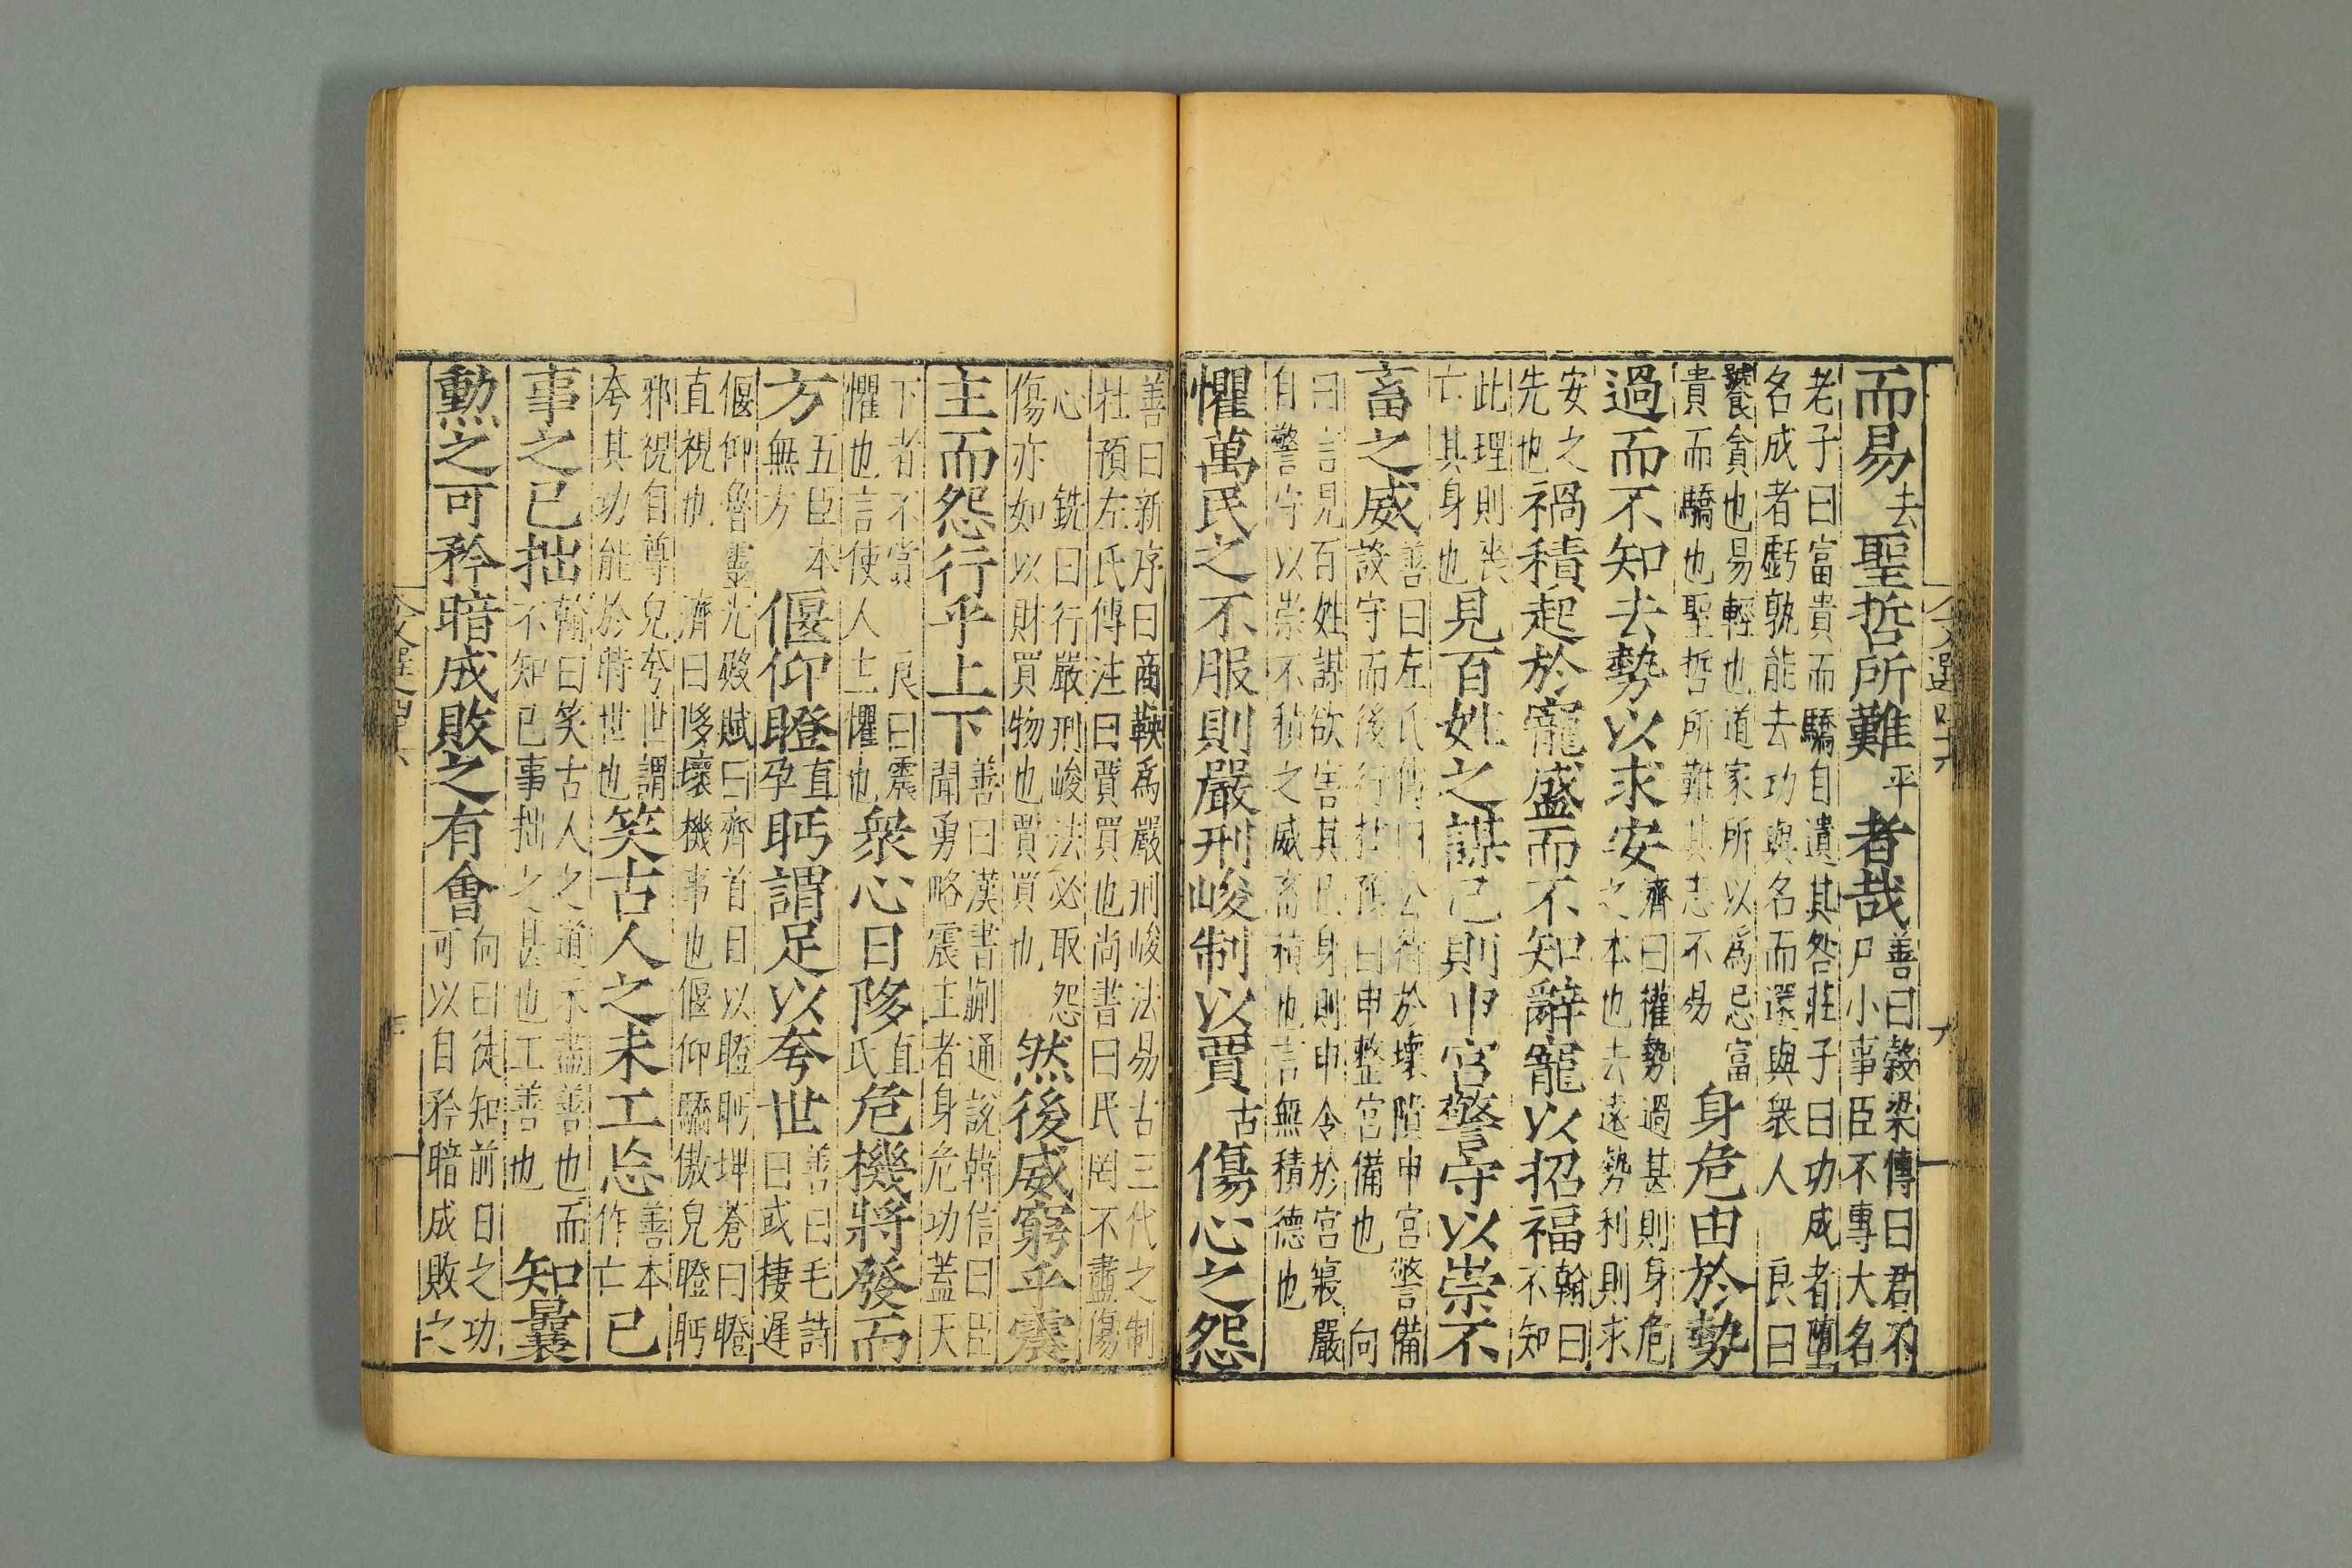 而易去聖哲所難平者哉善曰穀梁傳曰君不
尸小事臣不專大名
老子曰富貴而驕自遺其咎莊子曰功成者墮
名成者虧孰能去功與名而還與衆人　良曰
饕貪也易輕也道家所以爲忌富
貴而驕也聖哲所難其志不易身危由於勢
過而不知去勢以求安齊曰權勢過甚則身危
之本也去遠勢利則求
安之
先也禍積起於寵盛而不知辭寵以招福翰曰
不知
此理則喪
亡其身也見百姓之謀己則申宮警守以崇不
畜之威善曰左氏傳曰公待於壞隤申宮警備
設守而後行杜預曰申整宮備也　向
曰言見百姓謀欲害其己身則申令於宮寢嚴
自警守以崇不積之威畜積也言無積德也
懼萬民之不服則嚴刑峻制以賈古傷心之怨
善曰新序曰商鞅爲嚴刑峻法易古三代之制
杜預左氏傳注曰賈買也尚書曰民罔不盡傷
心　銑曰行嚴刑峻法必取怨
傷亦如以財買物也賈買也然後威窮乎震
主而怨行乎上下善曰漢書蒯通說韓信曰臣
聞勇略震主者身危功蓋天
下者不賞　良曰震
懼也言使人主懼也衆心日陊直氏危機將發而
方五臣本
無方偃仰瞪直孕眄謂足以夸世善曰毛詩
曰或棲遲
偃仰魯靈光殿賦曰齊首目以瞪眄埤蒼曰瞪
直視也　濟曰陊壞機事也偃仰驕傲皃瞪眄
邪視自尊皃夸世謂
夸其功能於時世也笑古人之未工忘善本
作亡已
事之已拙翰曰笑古人之道未盡善也而
不知己事拙之甚也工善也知曩
勲之可矜暗成敗之有會向曰徒知前日之功
可以自矜暗成敗之